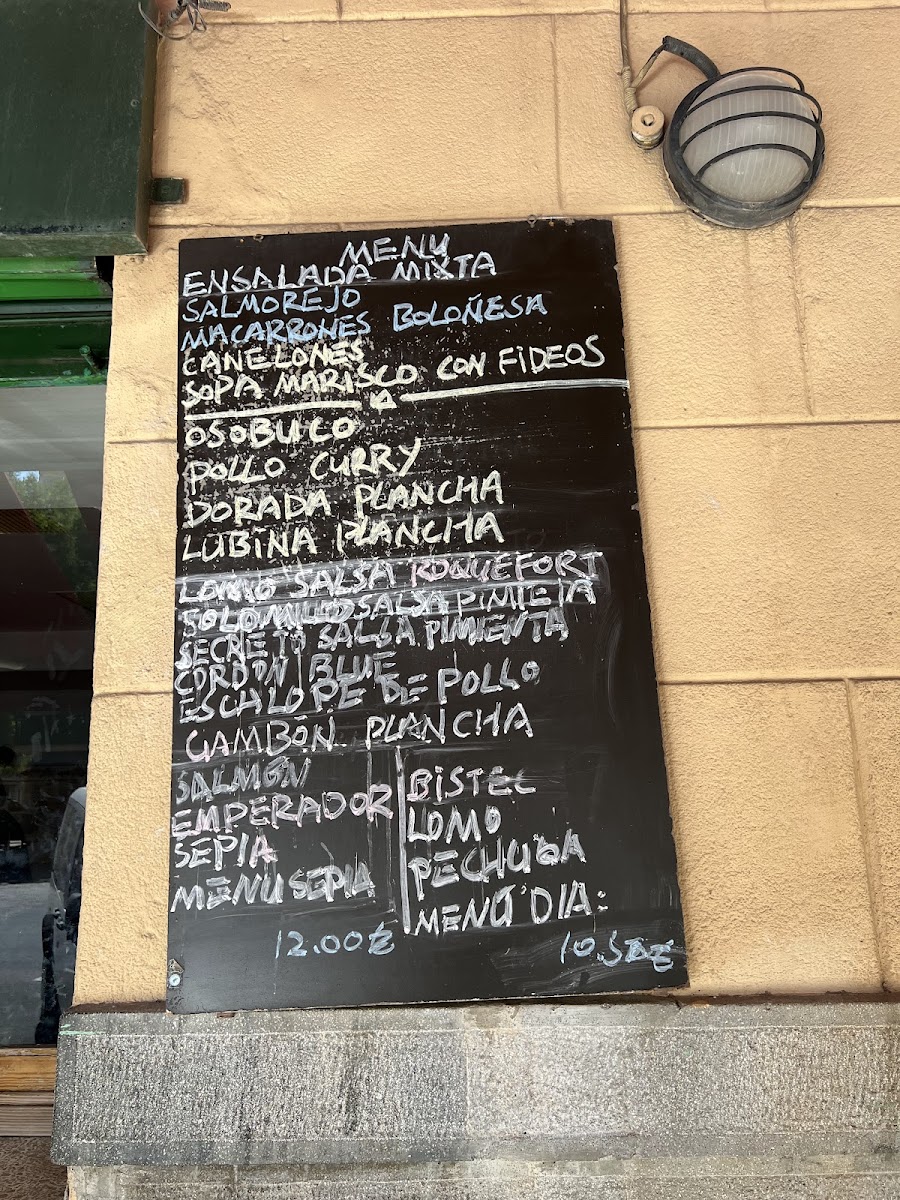 MENU
ENSALADA MIXTA
SALMOREJO
MACARRONES BOLOÑESA
CANELONES
SOPA MARISCO CON FIDEOS
OSOBUCO
POLLO CURRY
DORADA PLANCHA
LUBINA PLANCHA
LOMO SALSA ROQUEFORT
SOLOMILLO SALSA PIMIETA
SECRETO SALSA PIMIENTA
CORDON BLUE
ESCALOPE DE POLLO
GAMBÓN PLANCHA
SALMÓN
EMPERADOR
SEPIA
MENU SEPIA
12.00€
BISTEC
LOMO
PECHUGA
MENÚ DIA:
10.50€